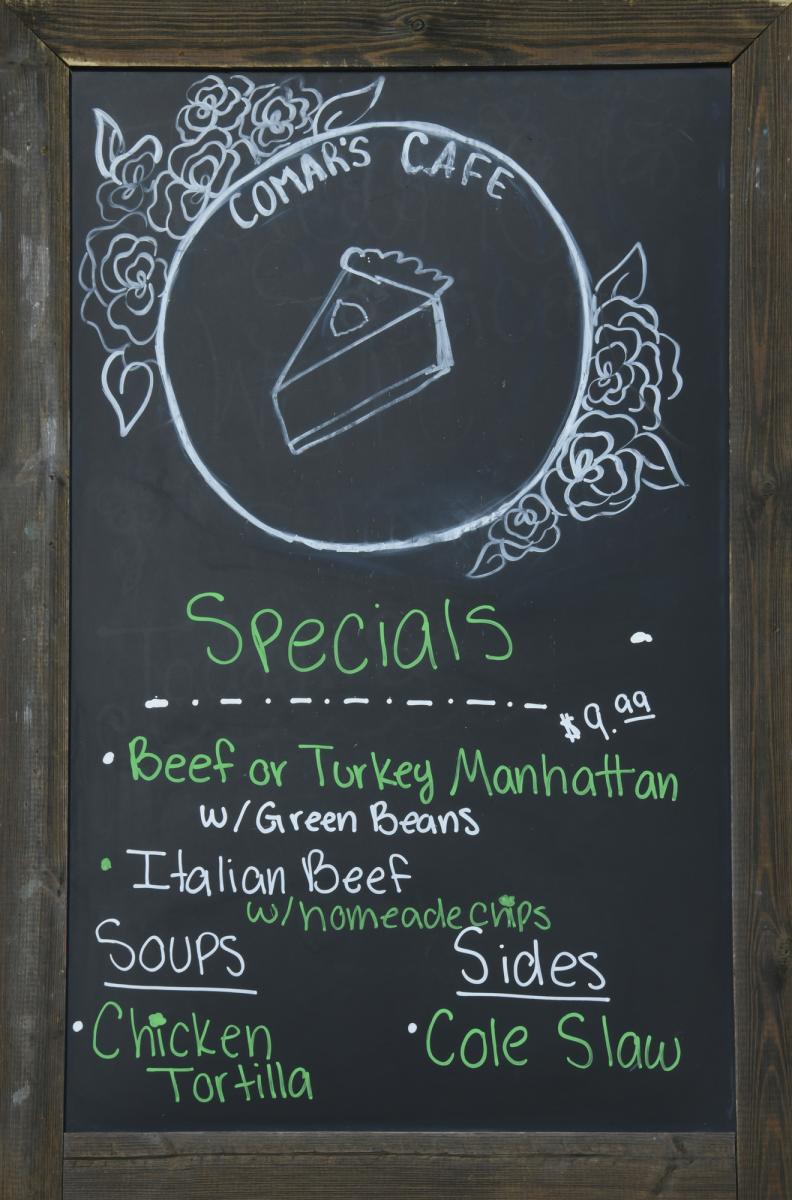 COMAR'S CAFE
Specials
$9.99
• Beef or Turkey Manhattan
w/Green Beans
• Italian Beef
w/homeade chips
Soups
Sides
• Chicken
Tortilla
• Cole Slaw